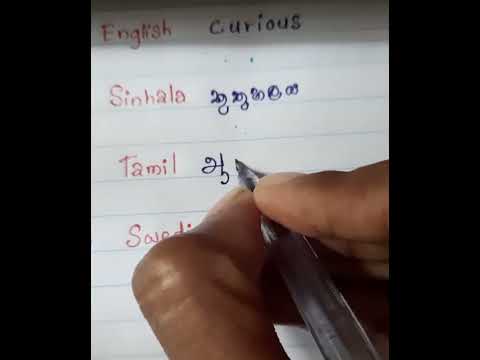 English Curious
Sinhala කුතුහලය
Tamil ஆ
Swedi